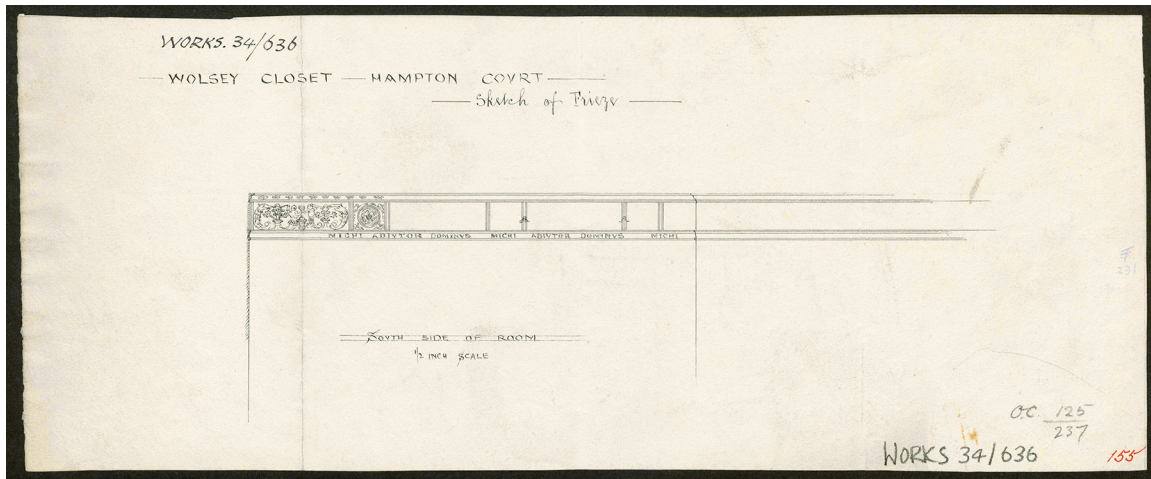 WORKS. 34/636
WOLSEY CLOSET — HAMPTON COVRT
Sketch of Frieze
MICHI ADIVTOR DOMINVS MICHI ADIVTOR DOMINVS MICHI
SOVTH SIDE OF ROOM
1/2 INCH SCALE
231
O.C. 125
237
WORKS 34/636
155